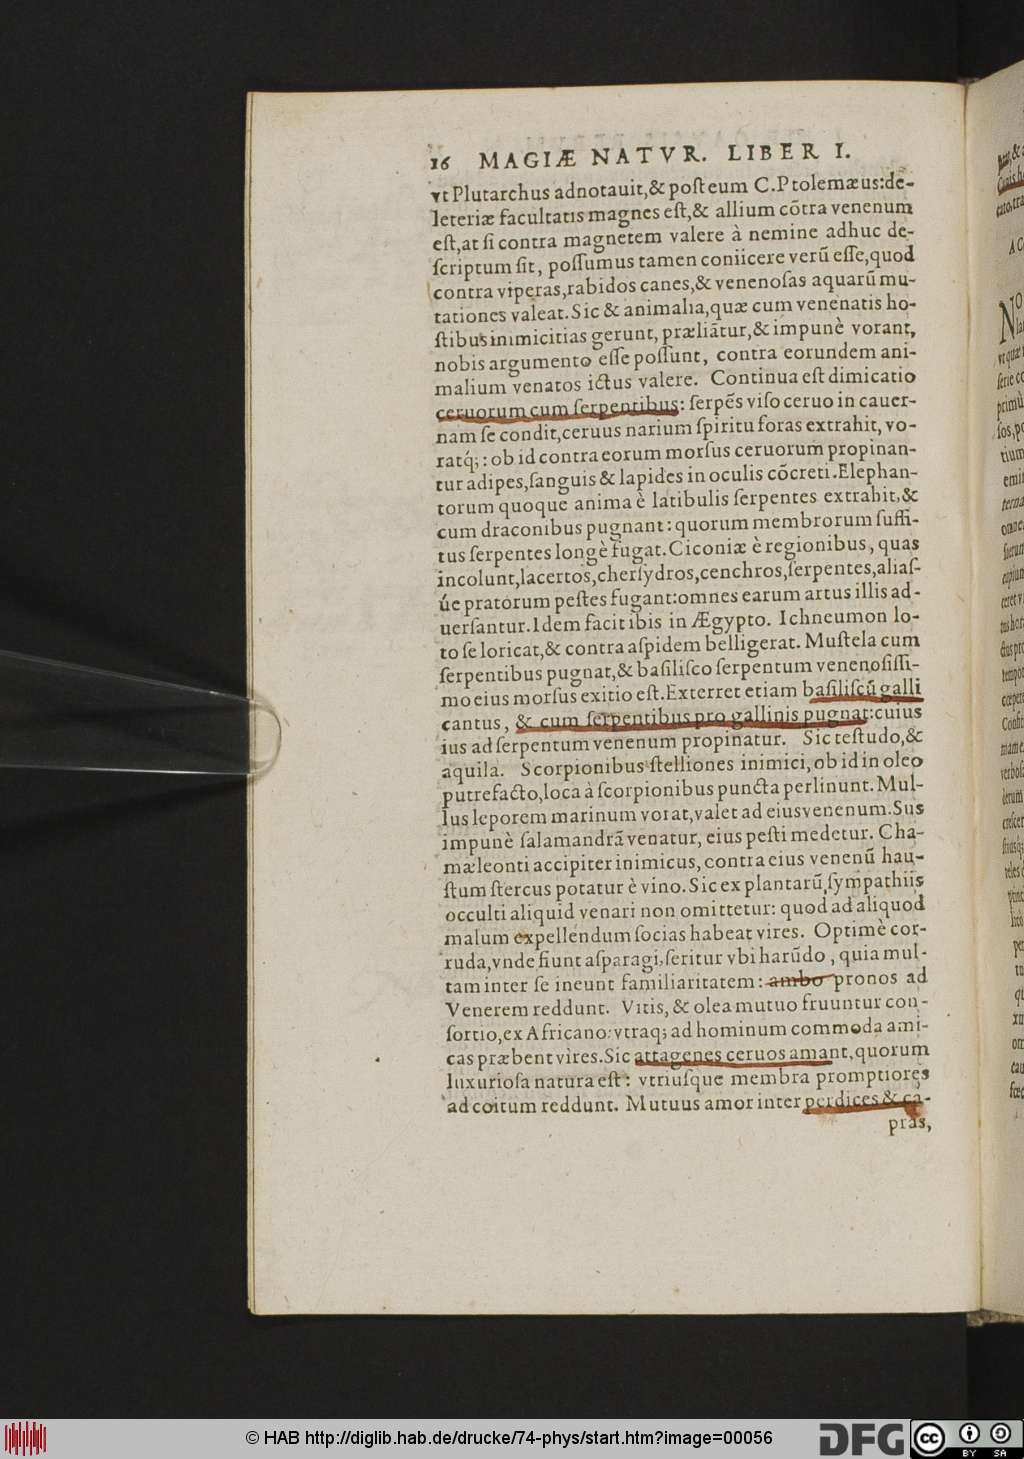 16 MAGIÆ NATVR. LIBER I.
vt Plutarchus adnotauit,& poſt eum C.Ptolemæus:de-
leteriæ facultatis magnes eſt,& allium cõtra venenum
eſt,at ſi contra magnetem valere à nemine adhuc de-
ſcriptum ſit, poſſumus tamen coniicere verũ eſſe,quod
contra viperas,rabidos canes,& venenoſas aquarũ mu-
tationes valeat.Sic & animalia,quæ cum venenatis ho-
ſtibus inimicitias gerunt, præliãtur,& impunè vorant,
nobis argumento eſſe poſſunt, contra eorundem ani-
malium venatos ictus valere. Continua eſt dimicatio
ceruorum cum ſerpentibus: ſerpẽs viſo ceruo in cauer-
nam ſe condit,ceruus narium ſpiritu foras extrahit, vo-
ratq́;: ob id contra eorum morſus ceruorum propinan-
tur adipes,ſanguis & lapides in oculis cõcreti.Elephan-
torum quoque anima è latibulis ſerpentes extrahit,&
cum draconibus pugnant: quorum membrorum ſuffi-
tus ſerpentes longè fugat.Ciconiæ è regionibus, quas
incolunt,lacertos,cherſydros,cenchros,ſerpentes,aliaſ-
úe pratorum peſtes fugant:omnes earum artus illis ad-
uerſantur.Idem facit ibis in Ægypto. Ichneumon lo-
to ſe loricat,& contra aſpidem belligerat. Muſtela cum
ſerpentibus pugnat,& baſiliſco ſerpentum venenoſiſſi-
mo eius morſus exitio eſt.Exterret etiam baſiliſcũ galli
cantus, & cum ſerpentibus pro gallinis pugnat:cuius
ius ad ſerpentum venenum propinatur. Sic teſtudo,&
aquila. Scorpionibus ſtelliones inimici,ob id in oleo
putrefacto,loca à ſcorpionibus puncta perlinunt.Mul-
lus leporem marinum vorat,valet ad eius venenum.Sus
impunè ſalamandrã venatur, eius peſti medetur. Cha-
mæleonti accipiter inimicus,contra eius venenũ hau-
ſtum ſtercus potatur è vino.Sic ex plantarũ ſympathiis
occulti aliquid venari non omittetur: quod ad aliquod
malum expellendum ſocias habeat vires. Optimè cor-
ruda,vnde fiunt aſparagi,ſeritur vbi harũdo, quia mul-
tam inter ſe ineunt familiaritatem: ambo pronos ad
Venerem reddunt. Vitis, & olea mutuo fruuntur con-
ſortio,ex Africano:vtraq; ad hominum commoda ami-
cas præbent vires.Sic attagenes ceruos amant,quorum
luxurioſa natura eſt: vtriuſque membra promptiores
ad coitum reddunt. Mutuus amor inter perdices & ca-
pras,
© HAB http://diglib.hab.de/drucke/74-phys/start.htm?image=00056
DFG
cc BY SA